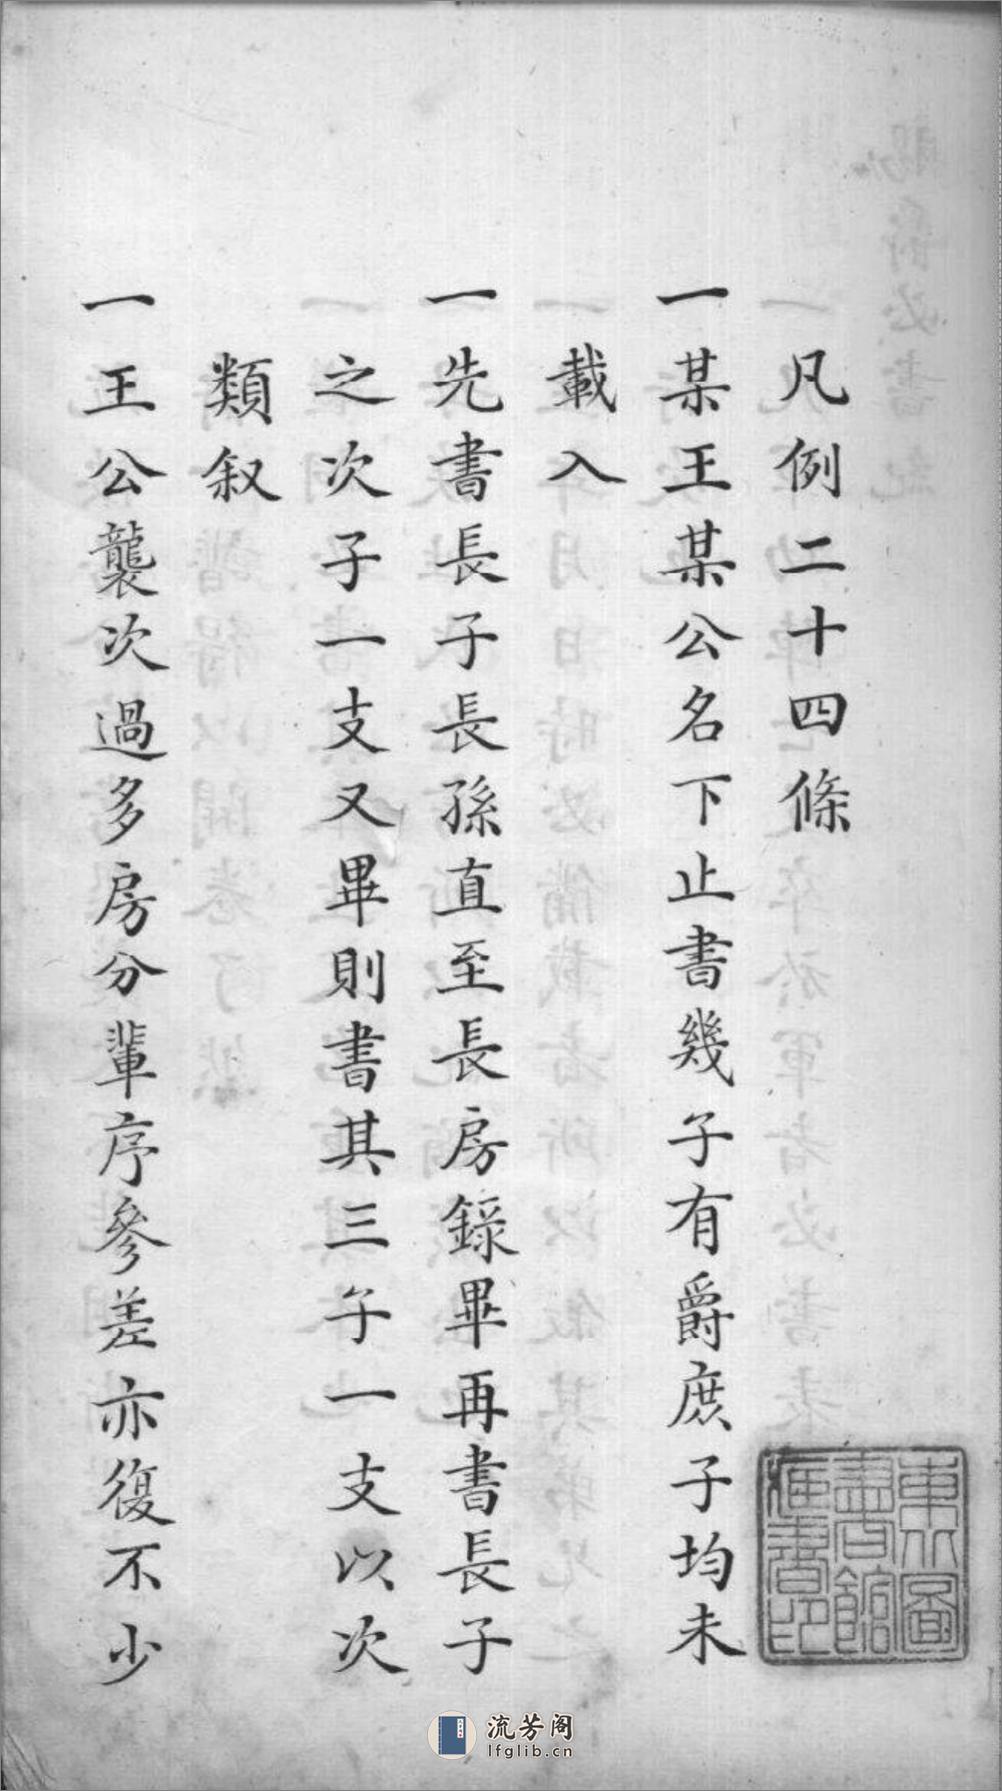 凡例二十四條
一某王某公名下止書幾子有爵庶子均未
載入
一先書長子長孫直至長房錄畢再書長子
之次子一支又畢則書其三子一支以次
類叙
一王公襲次過多房分輩序參差亦復不少
流芳阁
lfglib.cn